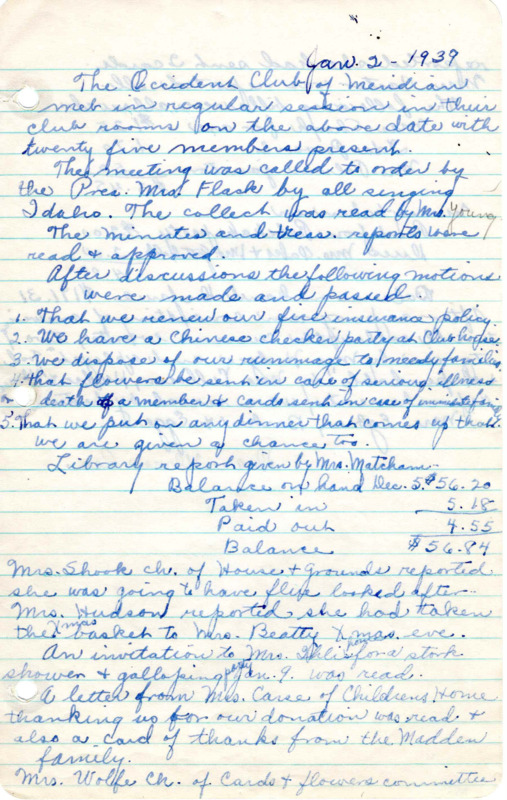 Jan. 2 - 1939
The Occident Club of Meridian
met in regular session in their
club rooms on the above date with
twenty five members present.
The meeting was called to order by
the Pres. Mrs. Flack by all singing
Idaho. The collect was read by Mrs. Young
The minutes and treas. reports were
read & approved.
After discussions the following motions
were made and passed.
1. That we renew our fire insurance policy.
2. We have a Chinese checker party at Club house.
3. We dispose of our rummage to needy families
4. that flowers be sent in case of serious illness
or death of a member & cards sent in case of
5. That we put on any dinner that comes up that
we are given a chance too.
Library report given by Mrs. Matcham
Balance on hand Dec. 5. $56.20
Taken in 5.18
Paid out 4.55
Balance $56.84
Mrs. Shook ch. of House & Grounds reported
she was going to have flue looked after
Mrs. Hudson reported she had taken
the Xmas basket to Mrs. Beatty Xmas eve.
An invitation to Mrs. home for a stork
shower & galloping party Jan. 9. was read.
A letter from Mrs. Carse of Childrens Home
thanking us for our donation was read &
also a card of thanks from the Madden
family.
Mrs. Wolfe Ch. of Cards & flowers committee